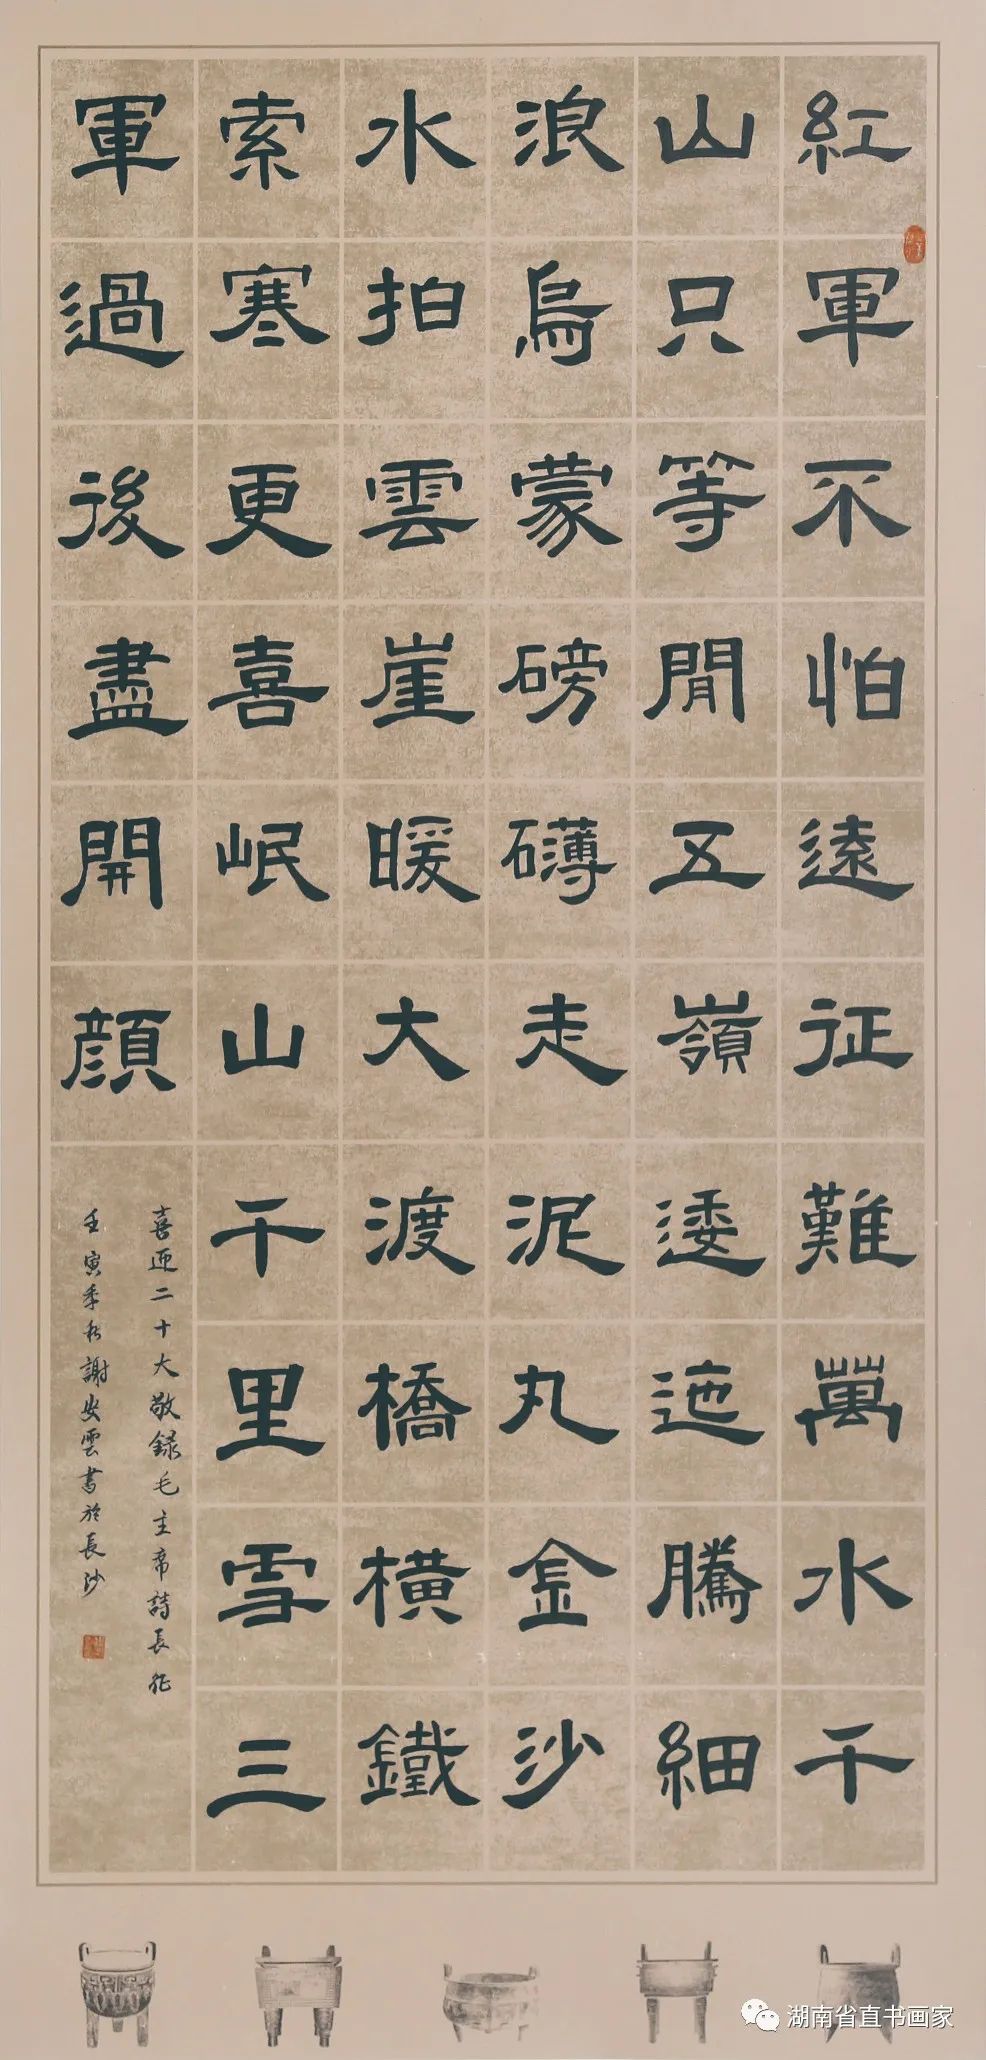 紅軍不怕遠征難萬水千
山只等閒五嶺逶迤騰細
浪烏蒙磅礴走泥丸金沙
水拍雲崖暖大渡橋橫鐵
索寒更喜岷山千里雪三
軍過後盡開顏
喜迎二十大敬録毛主席詩長征
壬寅季秋謝安雲書於長沙
湖南省直书画家